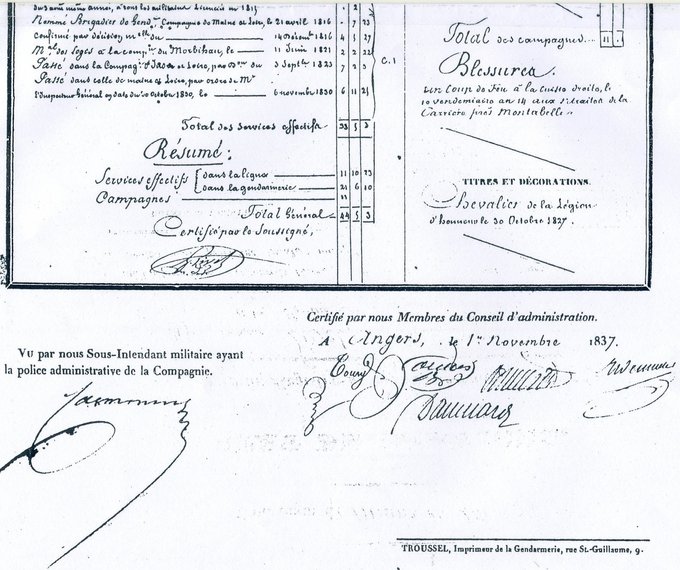 du 3 août même année, a tous les militaires licenciés en 1815 . 2 .
Nommé Brigadier de Gend.ie Compagnie de Maine et Loire, le 21 avril 1816 . 7 23
confirmé par décision m.elle du 1816 4 5 27
M.al des Loges à la comp.ie du Morbihan, le 11 Juin 1821 2 2 22
Passé dans la Compag.ie d'Indre et Loire, par du 3 Sept.bre 1823 7 2 3
Passé dans celle de maine et Loire, par ordre de M.r
l'Inspecteur Général en date du 30 Octobre 1830, le 6 novembre 1830 6 11 25
C. 1
Total des Services effectifs 33 5 3
Résumé :
Services effectifs dans la ligne 11 10 23
dans la gendarmerie 21 6 10
Campagnes 11
Total Général 44 5 3
Certifié par le Soussigné,
Total des campagnes 11
Blessures.
un Coup de Feu à la cuisse droite, le
10 vendemiaire an 14 aux retraites de la
Carrière près Montabelle
TITRES ET DÉCORATIONS.
Chevalier de la Légion
d'honneur le 30 Octobre 1827.
Certifié par nous Membres du Conseil d'administration.
A Angers, le 1er Novembre 1837.
VU par nous Sous-Intendant militaire ayant
la police administrative de la Compagnie.
TROUSSEL, Imprimeur de la Gendarmerie, rue St.-Guillaume, 9.